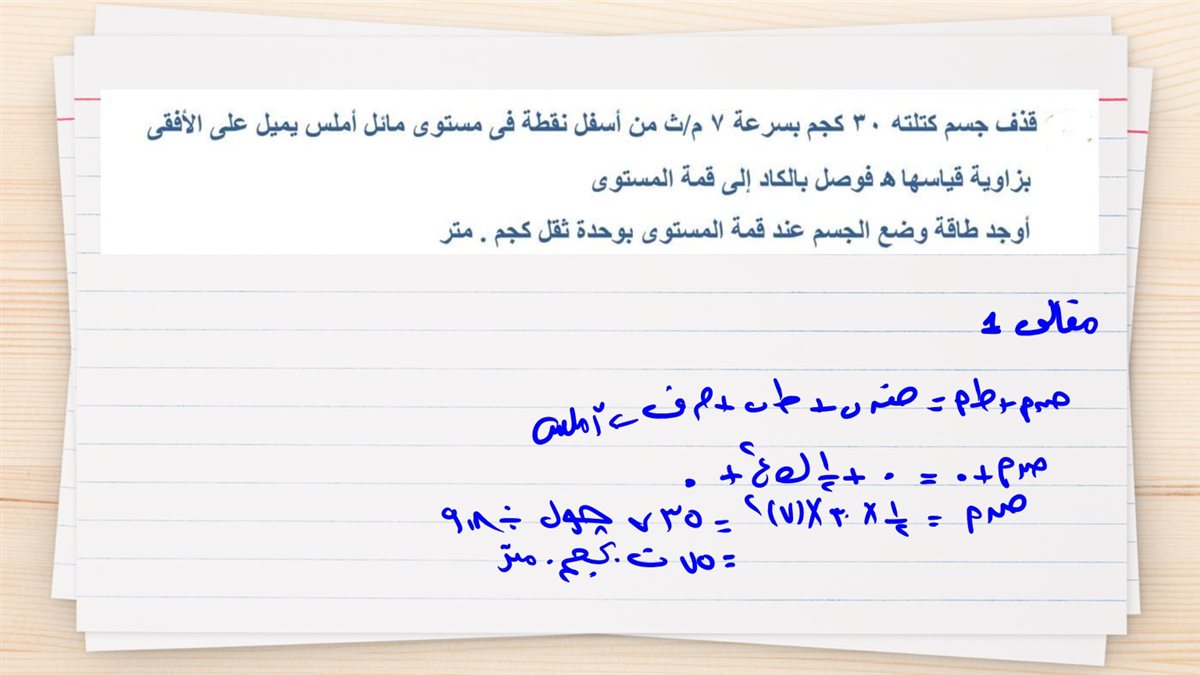 قذف جسم كتلته ٣٠ كجم بسرعة ٧ م/ث من أسفل نقطة فى مستوى مائل أملس يميل على الأفقى
بزاوية قياسها ھ فوصل بالكاد إلى قمة المستوى
أوجد طاقة وضع الجسم عند قمة المستوى بوحدة ثقل كجم . متر
مقالى 1
ضه م + ط م = ضه ب + ط ب + م ف ← أملس
ضه م + ٠ = ٠ + ١/٢ ك ع² + ٠
ضه م = ١/٢ × ٣٠ × (٧)² = ٧٣٥ جول ÷ ٩,٨
= ٧٥ ث. كجم. متر